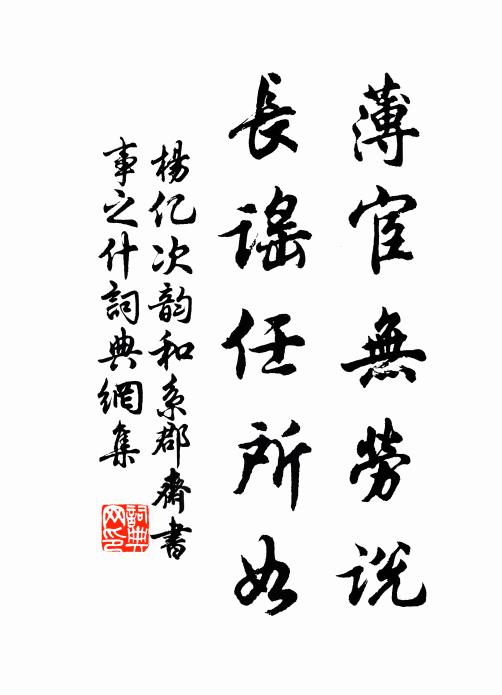 薄宦無勞説
長謡任所如
楊亿次韵和系郡齋書
事之什詞典網集
詞典
网印